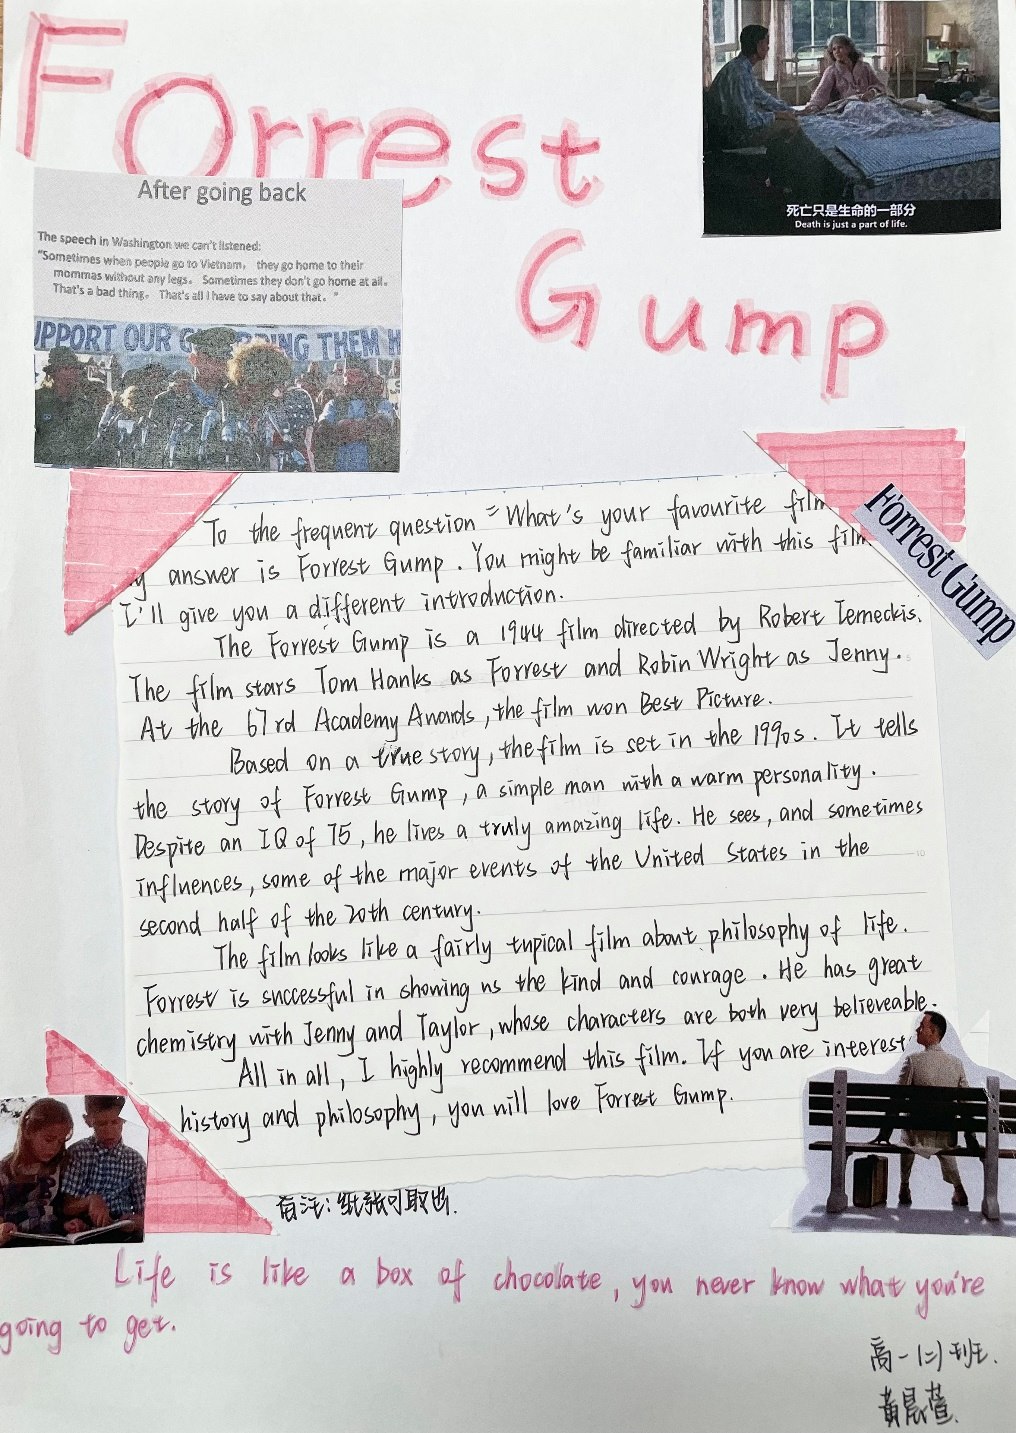 Forrest
Gump
死亡只是生命的一部分
Death is just a part of life.
After going back
The speech in Washington we can't listened:
"Sometimes when people go to Vietnam, they go home to their
mommas without any legs. Sometimes they don't go home at all.
That's a bad thing. That's all I have to say about that. "
UPPORT OUR G BRING THEM H
To the frequent question "What's your favourite film
y answer is Forrest Gump. You might be familiar with this film
I'll give you a different introduction.
The Forrest Gump is a 1944 film directed by Robert Zemeckis.
The film stars Tom Hanks as Forrest and Robin Wright as Jenny.
At the 67rd Academy Awards, the film won Best Picture.
Based on a true story, the film is set in the 1990s. It tells
the story of Forrest Gump, a simple man with a warm personality.
Despite an IQ of 75, he lives a truly amazing life. He sees, and sometimes
influences, some of the major events of the United States in the
second half of the 20th century.
The film looks like a fairly typical film about philosophy of life.
Forrest is successful in showing us the kind and courage. He has great
chemistry with Jenny and Taylor, whose characters are both very believeable.
All in all, I highly recommend this film. If you are interest
history and philosophy, you will love Forrest Gump.
Forrest Gump
备注:纸张可取出.
Life is like a box of chocolate, you never know what you're
going to get.
高一(二)班.
黄晨萱.